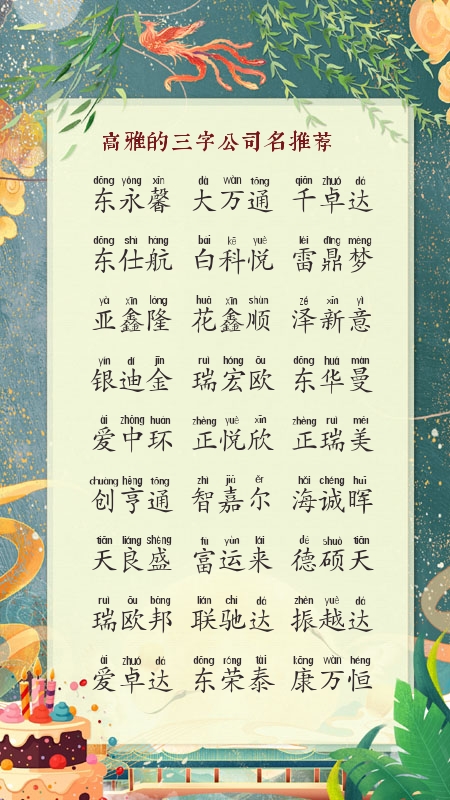 高雅的三字公司名推荐
dōng yǒng xīn dà wàn tōng qiān zhuó dá
东永馨 大万通 千卓达
dōng shì háng bái kē yuè léi dǐng mèng
东仕航 白科悦 雷鼎梦
yà xīn lóng huā xīn shùn zé xīn yì
亚鑫隆 花鑫顺 泽新意
yín dí jīn ruì hóng ōu dōng huá màn
银迪金 瑞宏欧 东华曼
ài zhōng huán zhèng yuè xīn zhèng ruì měi
爱中环 正悦欣 正瑞美
chuàng hēng tōng zhì jiā ěr hǎi chéng huī
创亨通 智嘉尔 海诚晖
tiān liáng shèng fù yùn lái dé shuò tiān
天良盛 富运来 德硕天
ruì ōu bāng lián chí dá zhèn yuè dá
瑞欧邦 联驰达 振越达
ài zhuó dá dōng róng tài kāng wàn héng
爱卓达 东荣泰 康万恒